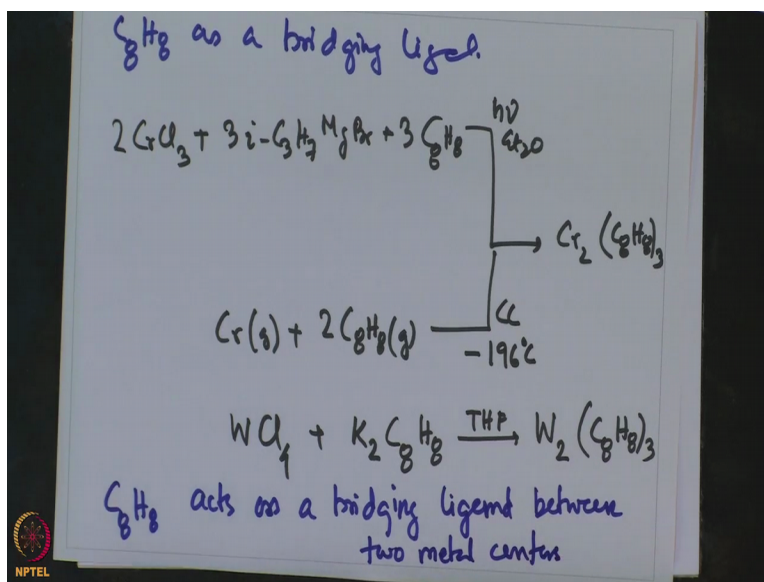 C8H8 as a bridging ligad.
2 CrCl3 + 3 i-C3H7MgBr + 3 C8H8 hν Et2O
→ Cr2(C8H8)3
Cr(g) + 2 C8H8(g) CC -196°C
WCl4 + K2C8H8 THF → W2(C8H8)3
C8H8 acts as a bridging ligand between
two metal centers
NPTEL